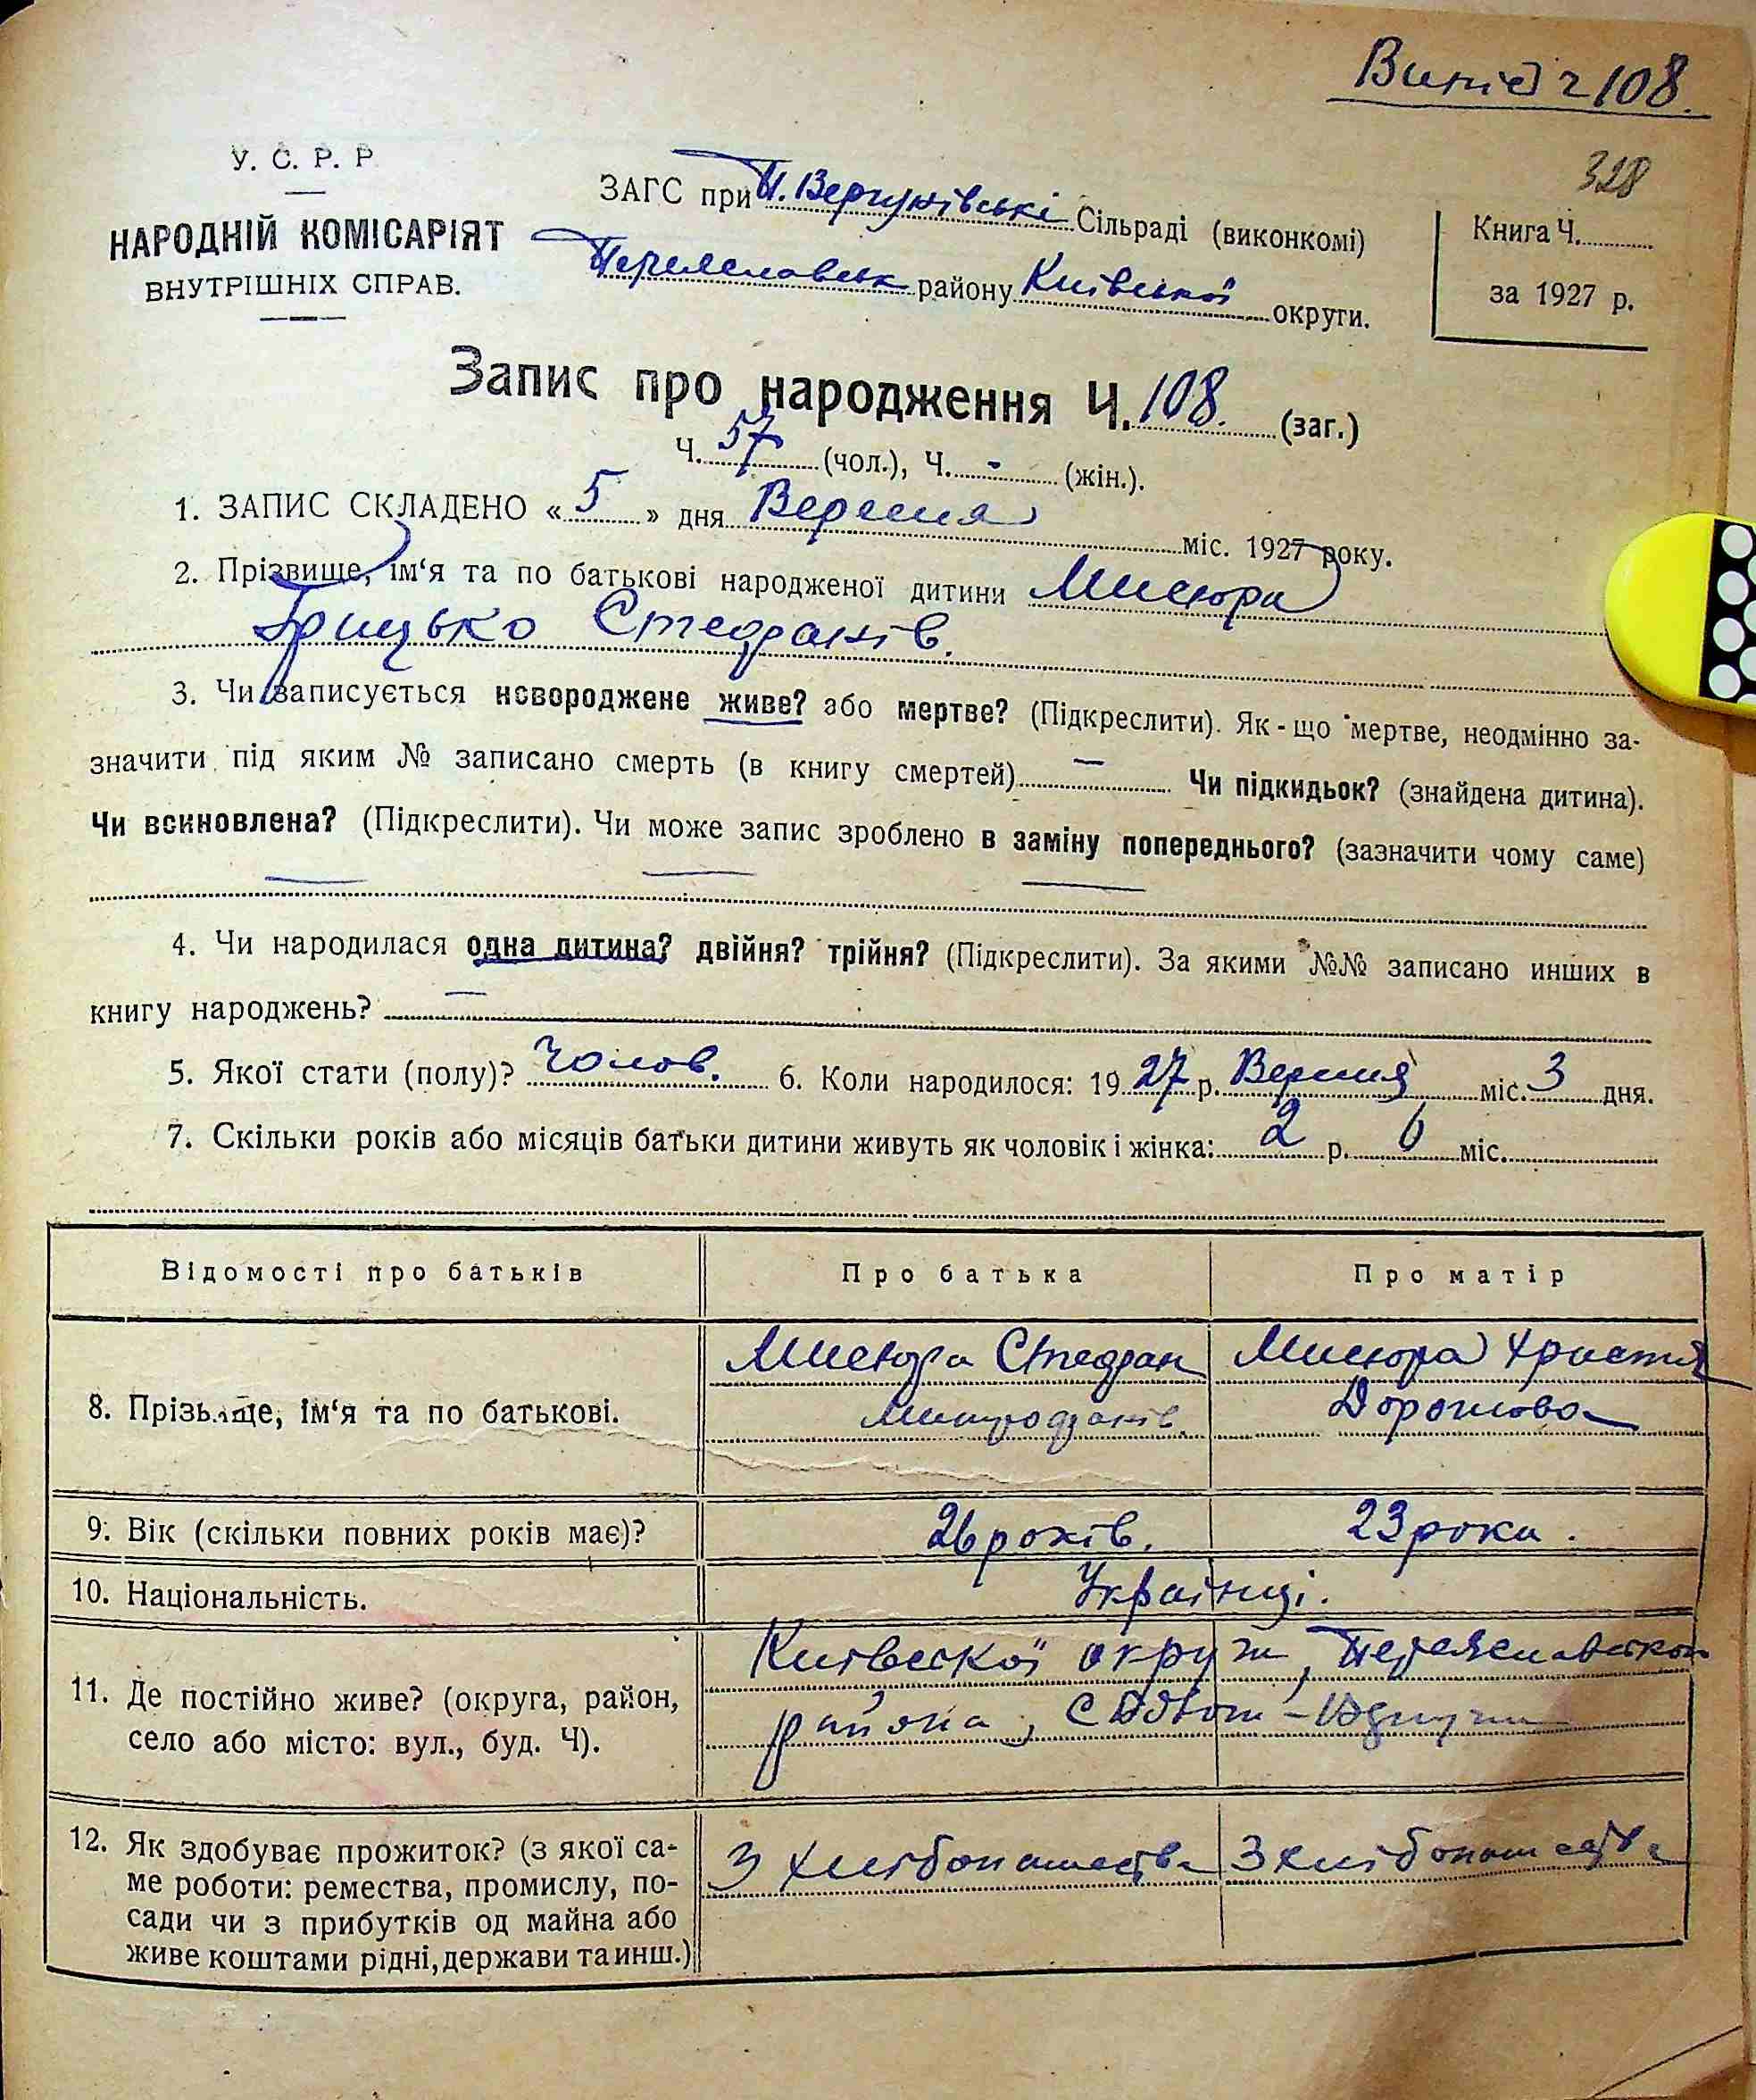 Випис ч 108.
328
У. С. Р. Р
НАРОДНІЙ КОМІСАРІЯТ
ВНУТРІШНІХ СПРАВ.
ЗАГС при П. Вергунівські Сільраді (виконкомі)
Переяславськ району Київської округи.
Книга Ч.
за 1927 р.
Запис про народження Ч. 108. (заг.)
Ч. 57 (чол.), Ч. - (жін.).
1. ЗАПИС СКЛАДЕНО « 5 » дня Вересня міс. 1927 року.
2. Прізвище, ім‘я та по батькові народженої дитини Мисюра
Грицько Стефанів.
3. Чи записується новороджене живе? або мертве? (Підкреслити). Як-що мертве, неодмінно за-
значити під яким № записано смерть (в книгу смертей) — Чи підкидьок? (знайдена дитина).
Чи всиновлена? (Підкреслити). Чи може запис зроблено в заміну попереднього? (зазначити чому саме)
— — —
4. Чи народилася одна дитина? двійня? трійня? (Підкреслити). За якими №№ записано инших в
книгу народжень? —
5. Якої стати (полу)? чолов. 6. Коли народилося: 19 27 р. Вересня міс. 3 дня.
7. Скільки років або місяців батьки дитини живуть як чоловік і жінка: 2 р. 6 міс.
Відомості про батьків
Про батька
Про матір
8. Прізвище, ім‘я та по батькові.
Мисюра Стефан
Мисюра Христя
Дорошова
9. Вік (скільки повних років має)?
26 років.
23 роки.
10. Національність.
Українці.
11. Де постійно живе? (округа, район,
село або місто: вул., буд. Ч).
Київської округи, Переяславської
района, с
12. Як здобуває прожиток? (з якої са-
ме роботи: ремества, промислу, по-
сади чи з прибутків од майна або
живе коштами рідні, держави та инш.)
З хлібопашества
З хлібопашества